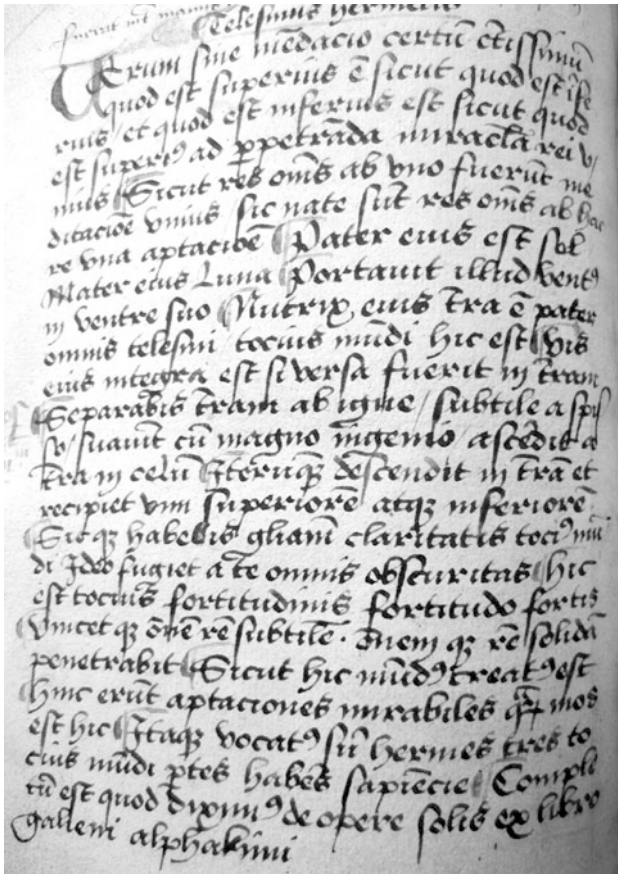 Telesinus hermetis
Uerum sine mēdacio certū c̄tissimū
quod est superius ē sicut quod est īfe
rius / et quod est inferius est sicut quod
est superiꝰ ad ꝑpetrāda miracl̄a rei v
nius Sicut res om̄s ab vno fuerūt me
ditacioē vnius sic nate sūt res om̄s ab hac
re vna aptacioē Pater eius est sol
Mater eius Luna Portauit illud ventꝰ
in ventre suo Nutrix eius t̄ra ē pater
omnis telesini tocius mūdi hic est vis
eius integra est si versa fuerit in t̄ram
Separabis t̄ram ab igne / subtile a spis
so / suauit̄ cū magno ingenio ascēdit a
t̄ra in celū Iterūqꝫ descendit in t̄rā et
recipiet vim superiorē atqꝫ inferiorē
Sicqꝫ habebis gl̄iam claritatis tociꝰ mū
di Ideo fugiet a te omnis obscuritas hic
est tocius fortitudinis fortitudo fortis
vincetqꝫ ōnē rē subtilē · ōnem qꝫ rē solidā
penetrabit Sicut hic mūdꝰ creatꝰ est
hinc erūt aptaciones mirabiles qꝝ mos
est hic Itaqꝫ vocatꝰ sū hermes tres to
cius mūdi ꝑtes habēs sapiēcie Comple
tū est quod diximꝰ de opere solis ex libro
galieni alphakimi